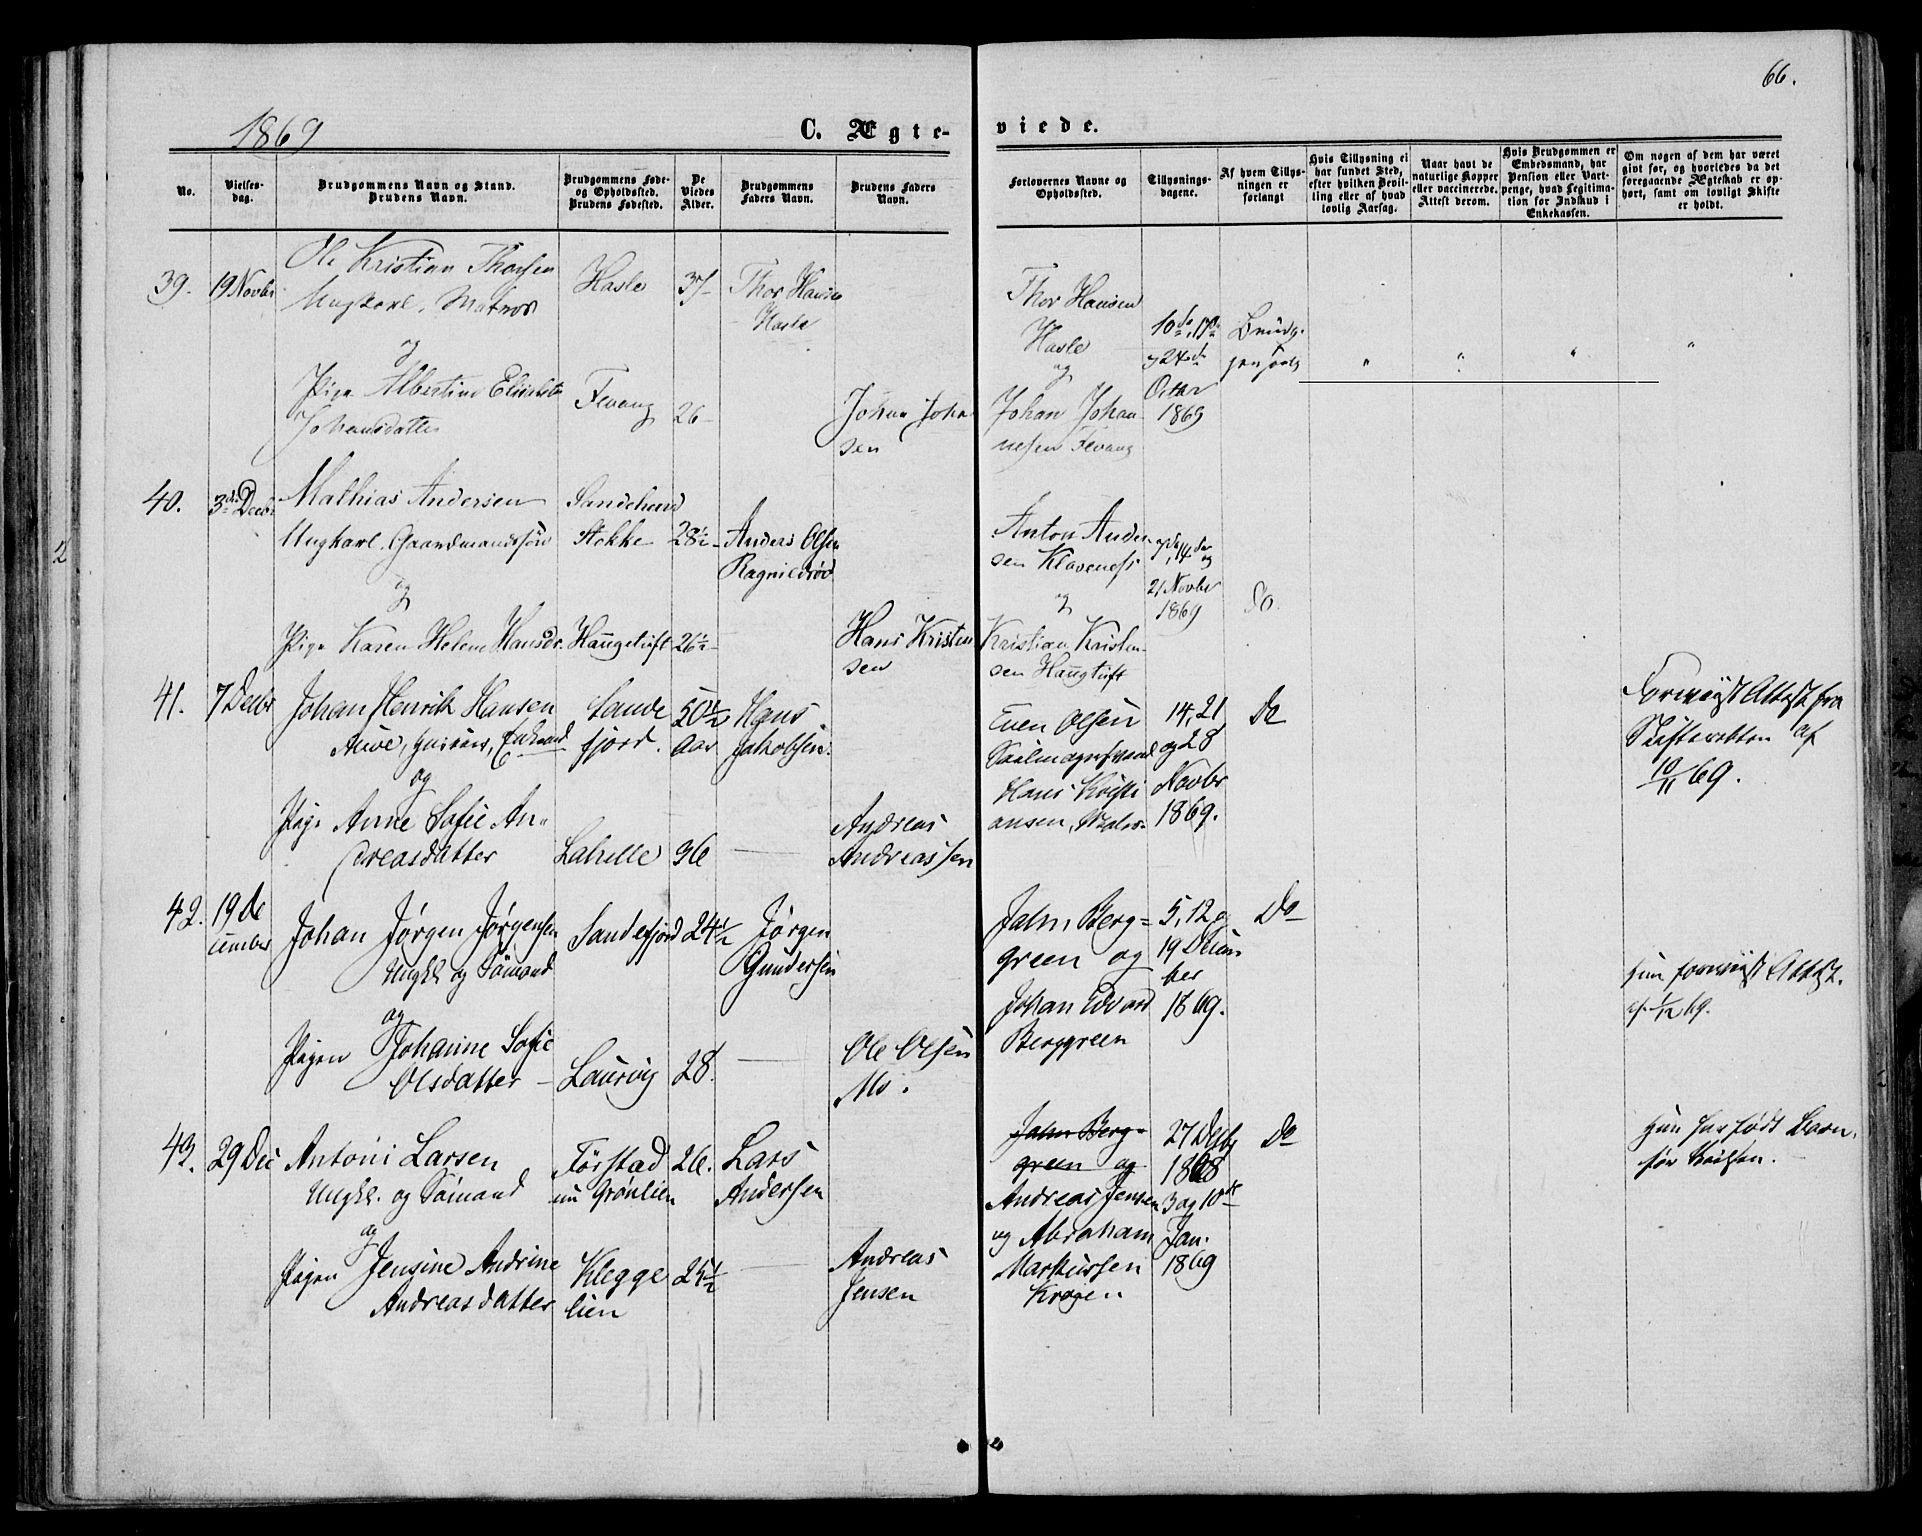 66.
1869
C. Ægte-
viede.
No.
Vielses-
dag.
Brudgommens Navn og Stand.
Brudens Navn.
Brudgommens Føde-
og Opholdssted.
Brudens Fødested.
De
Viedes
Alder.
Brudgommens
Faders Navn.
Brudens Faders
Navn.
Forlovernes Navne og
Opholdssted.
Tillysnings-
dagene.
Af hvem Tillys-
ningen er
forlangt
Hvis Tillysning ei
har fundet Sted,
efter hvilken Bevil-
ling eller af hvad
lovlig Aarsag.
Naar havt de
naturlige Kopper
eller vaccinerede.
Attest derom.
Hvis Brudgommen er
Embedsmand, har
Pension eller Vart-
penge, hvad Legitima-
tion for Indskud i
Enkekassen.
Om nogen af dem har været
givt før, og hvorledes da det
foregaaende Ægteskab er op-
hørt, samt om lovligt Skifte
er holdt.
39.
19 Novbr
Ole Kristian Thorsen
Ungkarl, Matros
og
Pige Albertine
Johansdatter
Hasle
Fevang
37
26
Thor Hansen
Hasle
Johan Johan
sen
Thor Hansen
Hasle
og
Johan Johan
nesen Fevang
10de, 17de
og 24de
Octbr
1869
40.
3de Decbr
Mathias Andersen
Ungkarl, Gaardmandssøn
og
Pige Karen Helene Hansdr.
Sandeherred
Stokke
Haugetuft
28½
26½
Anders Olsen
Ragnildrød
Hans Kristen
sen
Anton Ander
sen Klavenæs
og
Kristian Kristen
sen Haugtuft
7de, 14de og
21 Novbr
1869
Do.
41.
7 Decbr
Johan Henrik Hansen
Enkemand
og
Pige Anne Sofie An-
dreasdatter
Sande
fjord.
Lahelle
50½
Aar
36
Hans
Jakobsen.
Andreas
Andreassen
Even Olsen
Hans Kristi
ansen,
14, 21
og 28
Novbr
1869.
Do
Forevist Attest fra
Skifteretten af
10/11 69.
42.
19 De
cember
Johan Jørgen Jørgensen
Ungkl. og Sømand
og
Pigen Johanne Sofie
Olsdatter
Sandefjord
Laurvig
24½
28.
Jørgen
Gundersen
Ole Olsen
Mo.
Jahn Berg-
green og
Johan Edvard
Berggreen
5, 12 og
19 Decem
ber
1869.
Do
hun forevist Attest.
af 1/12 69.
43.
29 Dec
Antoni Larsen
Ungkl. og Sømand
og
Pigen Jensine Andrine
Andreasdatter
Førstad
nu Grønlien
Klegge
lien
26.
25½
Lars
Andersen
Andreas
Jensen
Jahn Berg-
green og
Andreas Jensen
og Abraham
Markussen
Krogen
27 Decbr
1868
3 og 10de
Jan.
1869
Do
Hun har født Barn
før Vielsen.